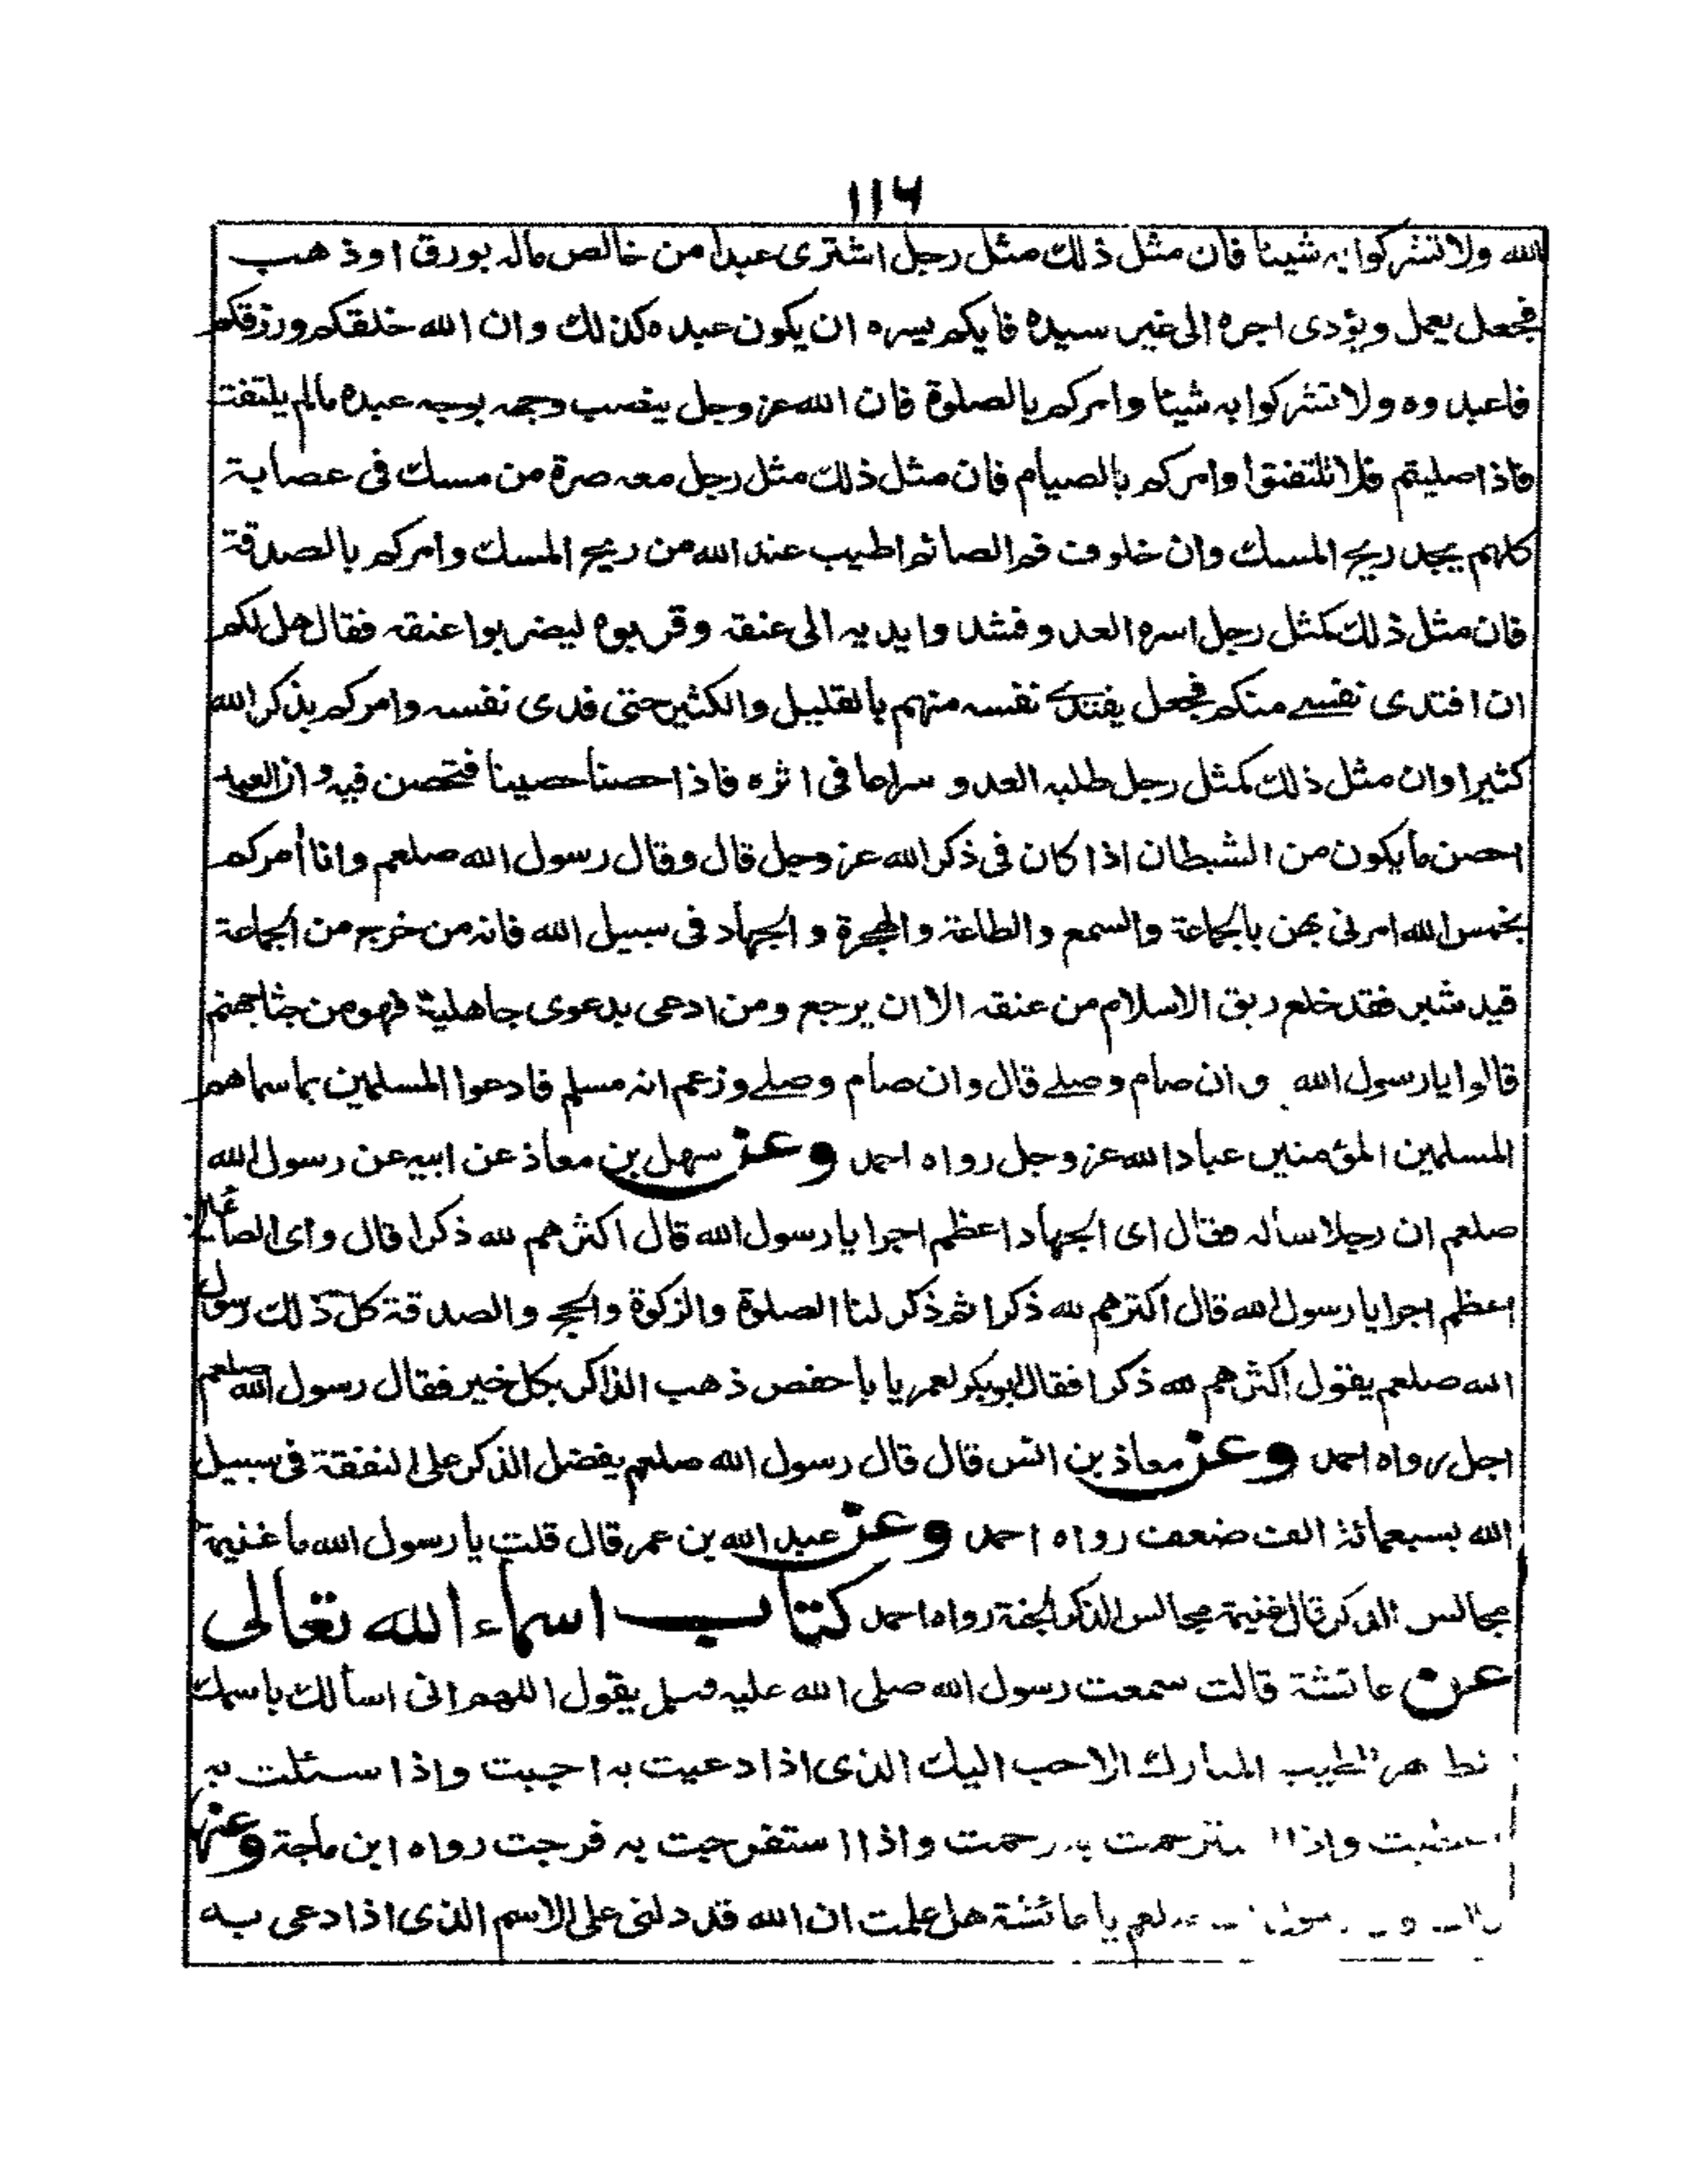 ١١٦
الله ولا تشركوا به شيئا فان مثل ذلك مثل رجل اشترى عبدا من خالص ماله بورق او ذهب
فجعل يعمل ويؤدى اجره الى غير سيده فايكم يسره ان يكون عبده كذلك وان الله خلقكم ورزقكم
فاعبدوه ولا تشركوا به شيئا وامركم بالصلوة فان الله عز وجل ينصب وجهه بوجه عبده مالم يلتفت
فاذا صليتم فلا تلتفتوا وامركم بالصيام فان مثل ذلك مثل رجل معه صرة من مسك فى عصابة
كلهم يجد ريح المسك وان خلوف فم الصائم اطيب عند الله من ريح المسك وامركم بالصدقة
فان مثل ذلك كمثل رجل اسره العدو فشدوا يديه الى عنقه وقربوه ليضربوا عنقه فقال هل لكم
ان افتدى نفسے منكم فجعل يفتدے نفسه منهم بالقليل والكثير حتى فدى نفسه وامركم بذكر الله
كثيرا وان مثل ذلك كمثل رجل طلبه العدو سراعا فى اثره فاذا حصنا حصينا فتحصن فيه وان العبد
احصن ما يكون من الشيطان اذا كان فى ذكر الله عز وجل قال وقال رسول الله صلعم وانا أمركم
بخمس الله امرنى بهن بالجماعة والسمع والطاعة والهجرة والجهاد فى سبيل الله فانه من خرج من الجماعة
قيد شبر فقد خلع ربق الاسلام من عنقه الا ان يرجع ومن ادعى بدعوى جاهلية فهو من جثا جهنم
قالوا يا رسول الله وان صام وصلے قال وان صام وصلے وزعم انه مسلم فادعوا المسلمين بما سماهم
المسلمين المؤمنين عباد الله عز وجل رواه احمد وعن سهل بن معاذ عن ابيه عن رسول الله
صلعم ان رجلا سأله فقال اى الجهاد اعظم اجرا يا رسول الله قال اكثرهم لله ذكرا قال واى الصائمين
اعظم اجرا يا رسول الله قال اكثرهم لله ذكرا ثم ذكر لنا الصلوة والزكوة والحج والصدقة كل ذلك رسول
الله صلعم يقول اكثرهم لله ذكرا فقال ابو بكر لعمر يا با حفص ذهب الذاكر بكل خير فقال رسول الله صلعم
اجل رواه احمد وعن معاذ بن انس قال قال رسول الله صلعم يفضل الذكر على النفقة فى سبيل
الله بسبعمائة الف ضعف رواه احمد وعن عبد الله بن عمر قال قلت يا رسول الله ما غنيمة
مجالس الذكر قال غنيمة مجالس الذكر الجنة رواه احمد كتاب اسماء الله تعالى
عن عائشة قالت سمعت رسول الله صلى الله عليه وسلم يقول اللهم انى اسألك باسمك
الطيب المبارك الاحب اليك الذى اذا دعيت به اجبت واذا سئلت به
واذا استرحمت به رحمت واذا استفرجت به فرجت رواه ابن ماجة وعنها
صلعم يا عائشة هل علمت ان الله قد دلنى على الاسم الذى اذا دعى به